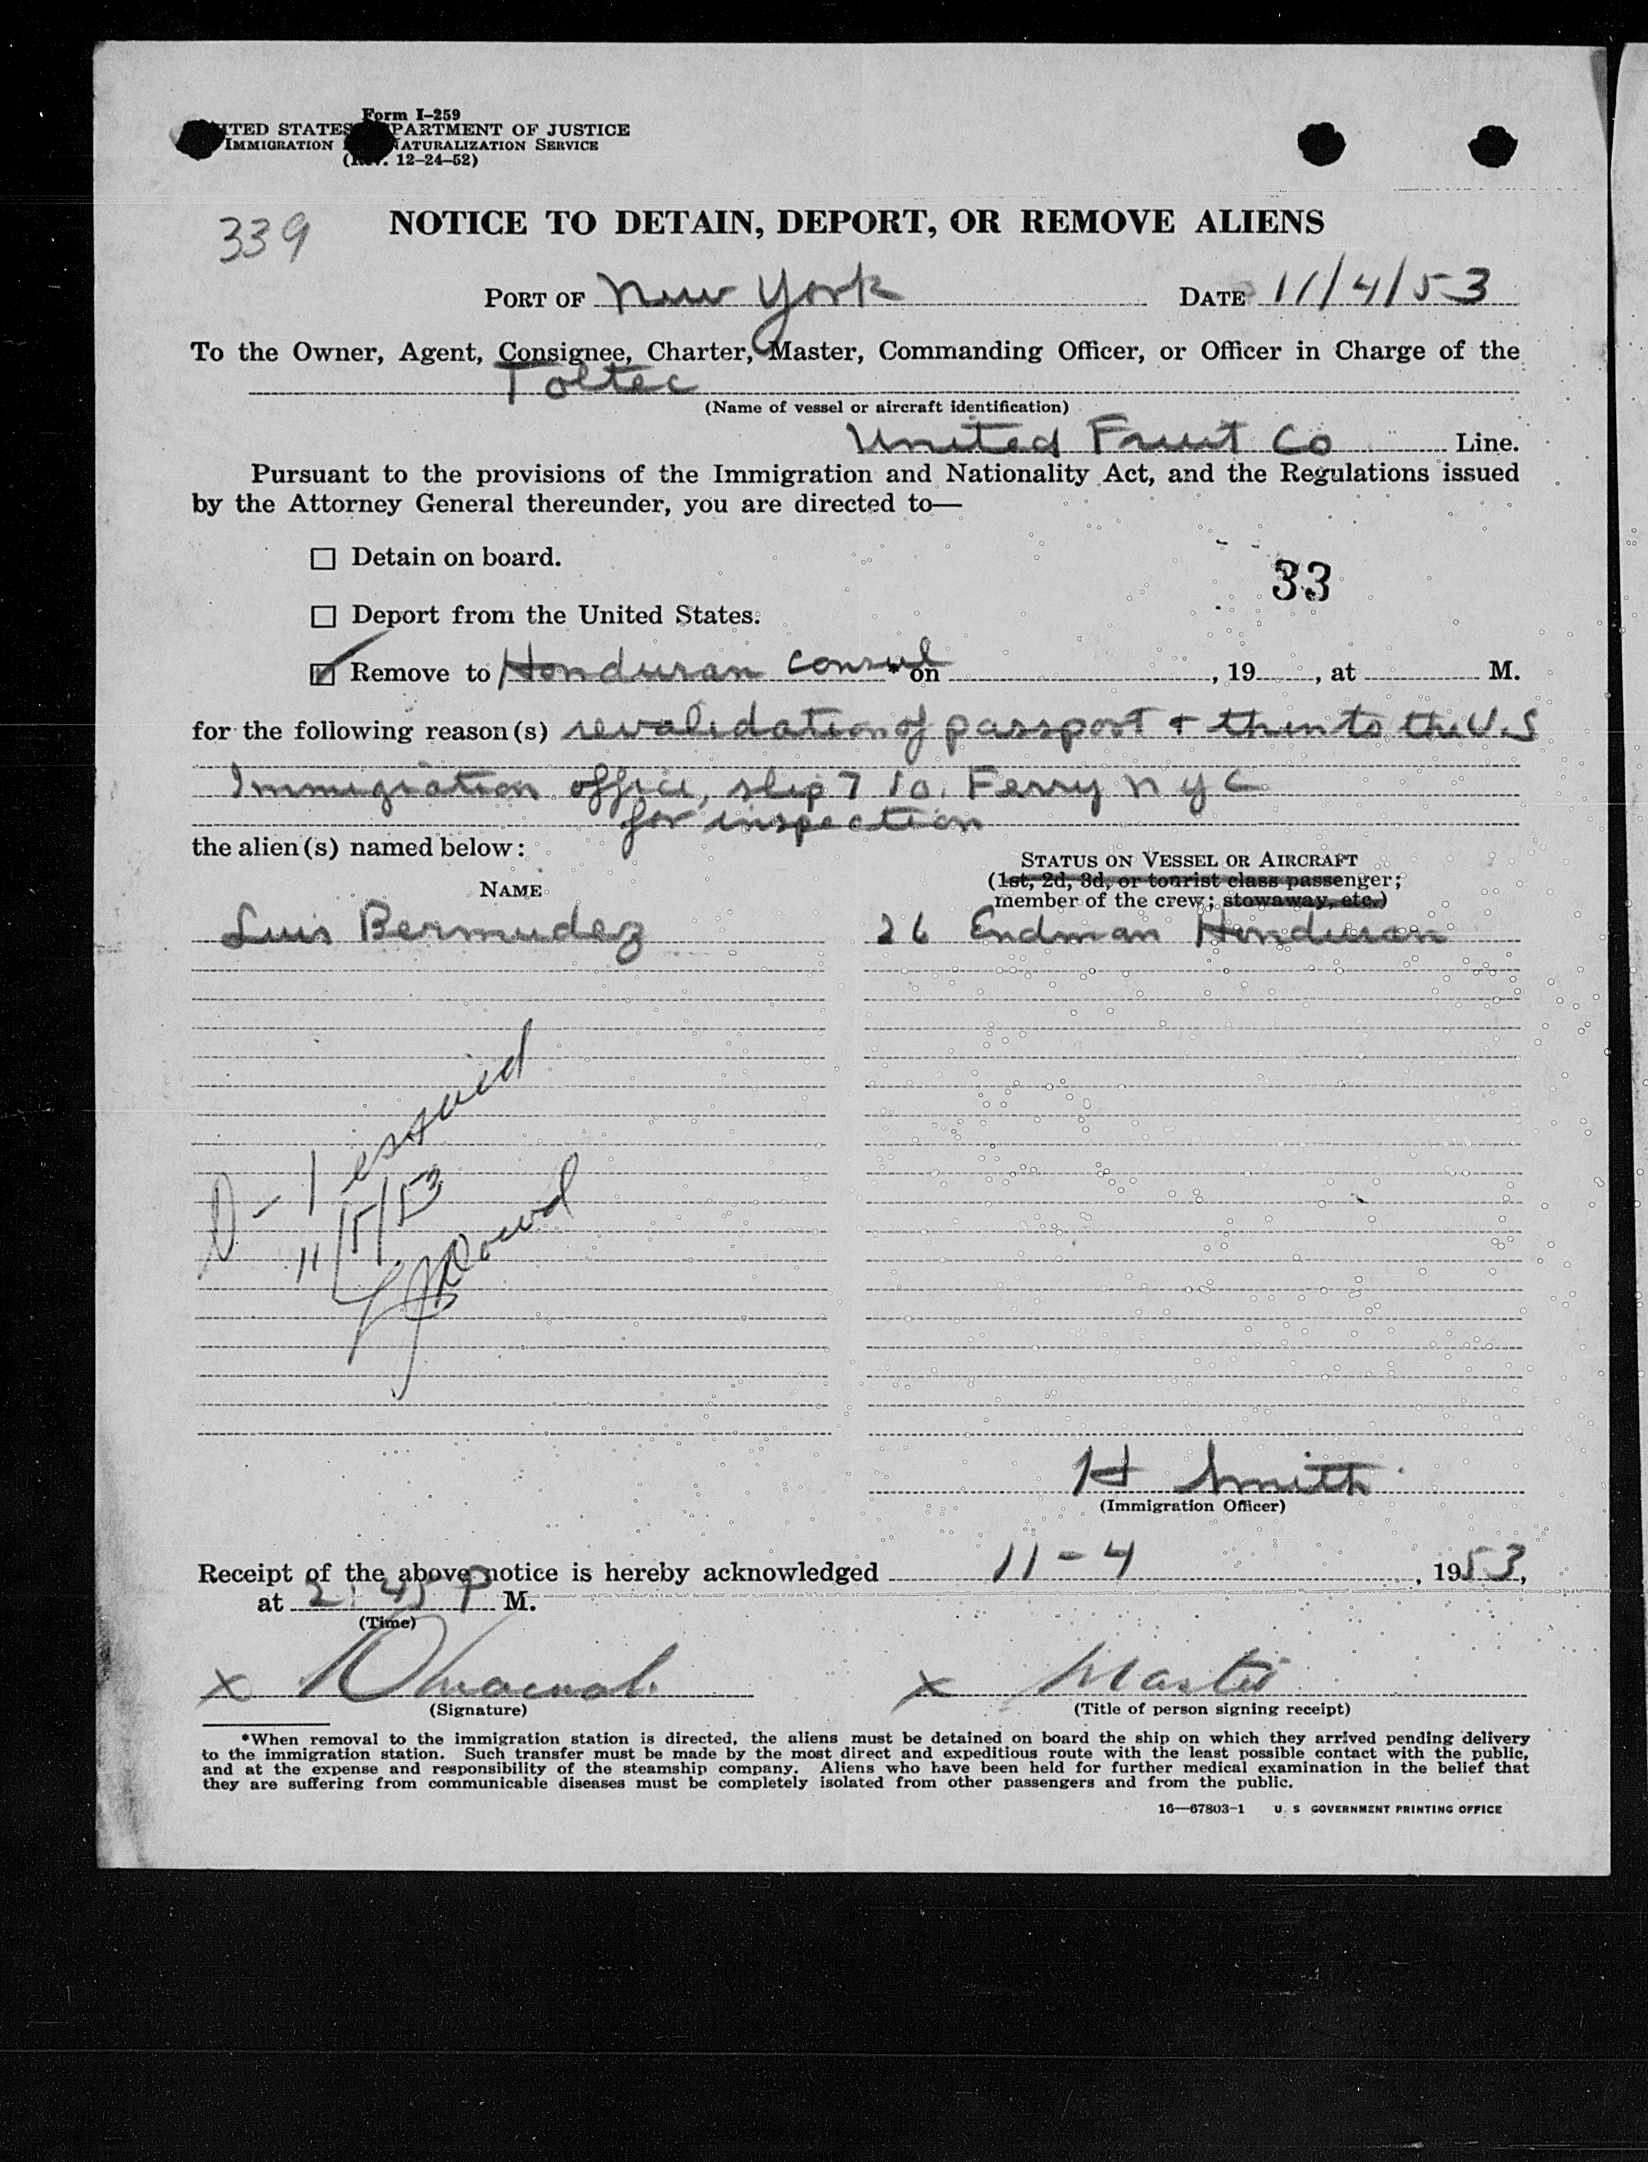 Form I-259
UNITED STATES DEPARTMENT OF JUSTICE
IMMIGRATION NATURALIZATION SERVICE
(Rev. 12-24-52)
339
NOTICE TO DETAIN, DEPORT, OR REMOVE ALIENS
PORT OF New York DATE 11/4/53
To the Owner, Agent, Consignee, Charter, Master, Commanding Officer, or Officer in Charge of the
Toltec
(Name of vessel or aircraft identification)
United Fruit Co Line.
Pursuant to the provisions of the Immigration and Nationality Act, and the Regulations issued
by the Attorney General thereunder, you are directed to—
☐ Detain on board.
33
☐ Deport from the United States.
☑ Remove to Honduran consul * on , 19 , at M.
for the following reason(s) revalidation of passport & then to the U.S
Immigration office, slip 7 So. Ferry N Y C
for inspection
the alien(s) named below:
STATUS ON VESSEL OR AIRCRAFT
(1st, 2d, 3d, or tourist class passenger;
NAME
member of the crew; stowaway, etc.)
Luis Bermudez 26 Endman Honduran
D-1 issued
11/5/53
Dowd
H Smith
(Immigration Officer)
Receipt of the above notice is hereby acknowledged 11-4, 1953,
at 2:45 P M.
(Time)
x x Master
(Signature) (Title of person signing receipt)
*When removal to the immigration station is directed, the aliens must be detained on board the ship on which they arrived pending delivery
to the immigration station. Such transfer must be made by the most direct and expeditious route with the least possible contact with the public,
and at the expense and responsibility of the steamship company. Aliens who have been held for further medical examination in the belief that
they are suffering from communicable diseases must be completely isolated from other passengers and from the public.
16—67803-1 U. S. GOVERNMENT PRINTING OFFICE